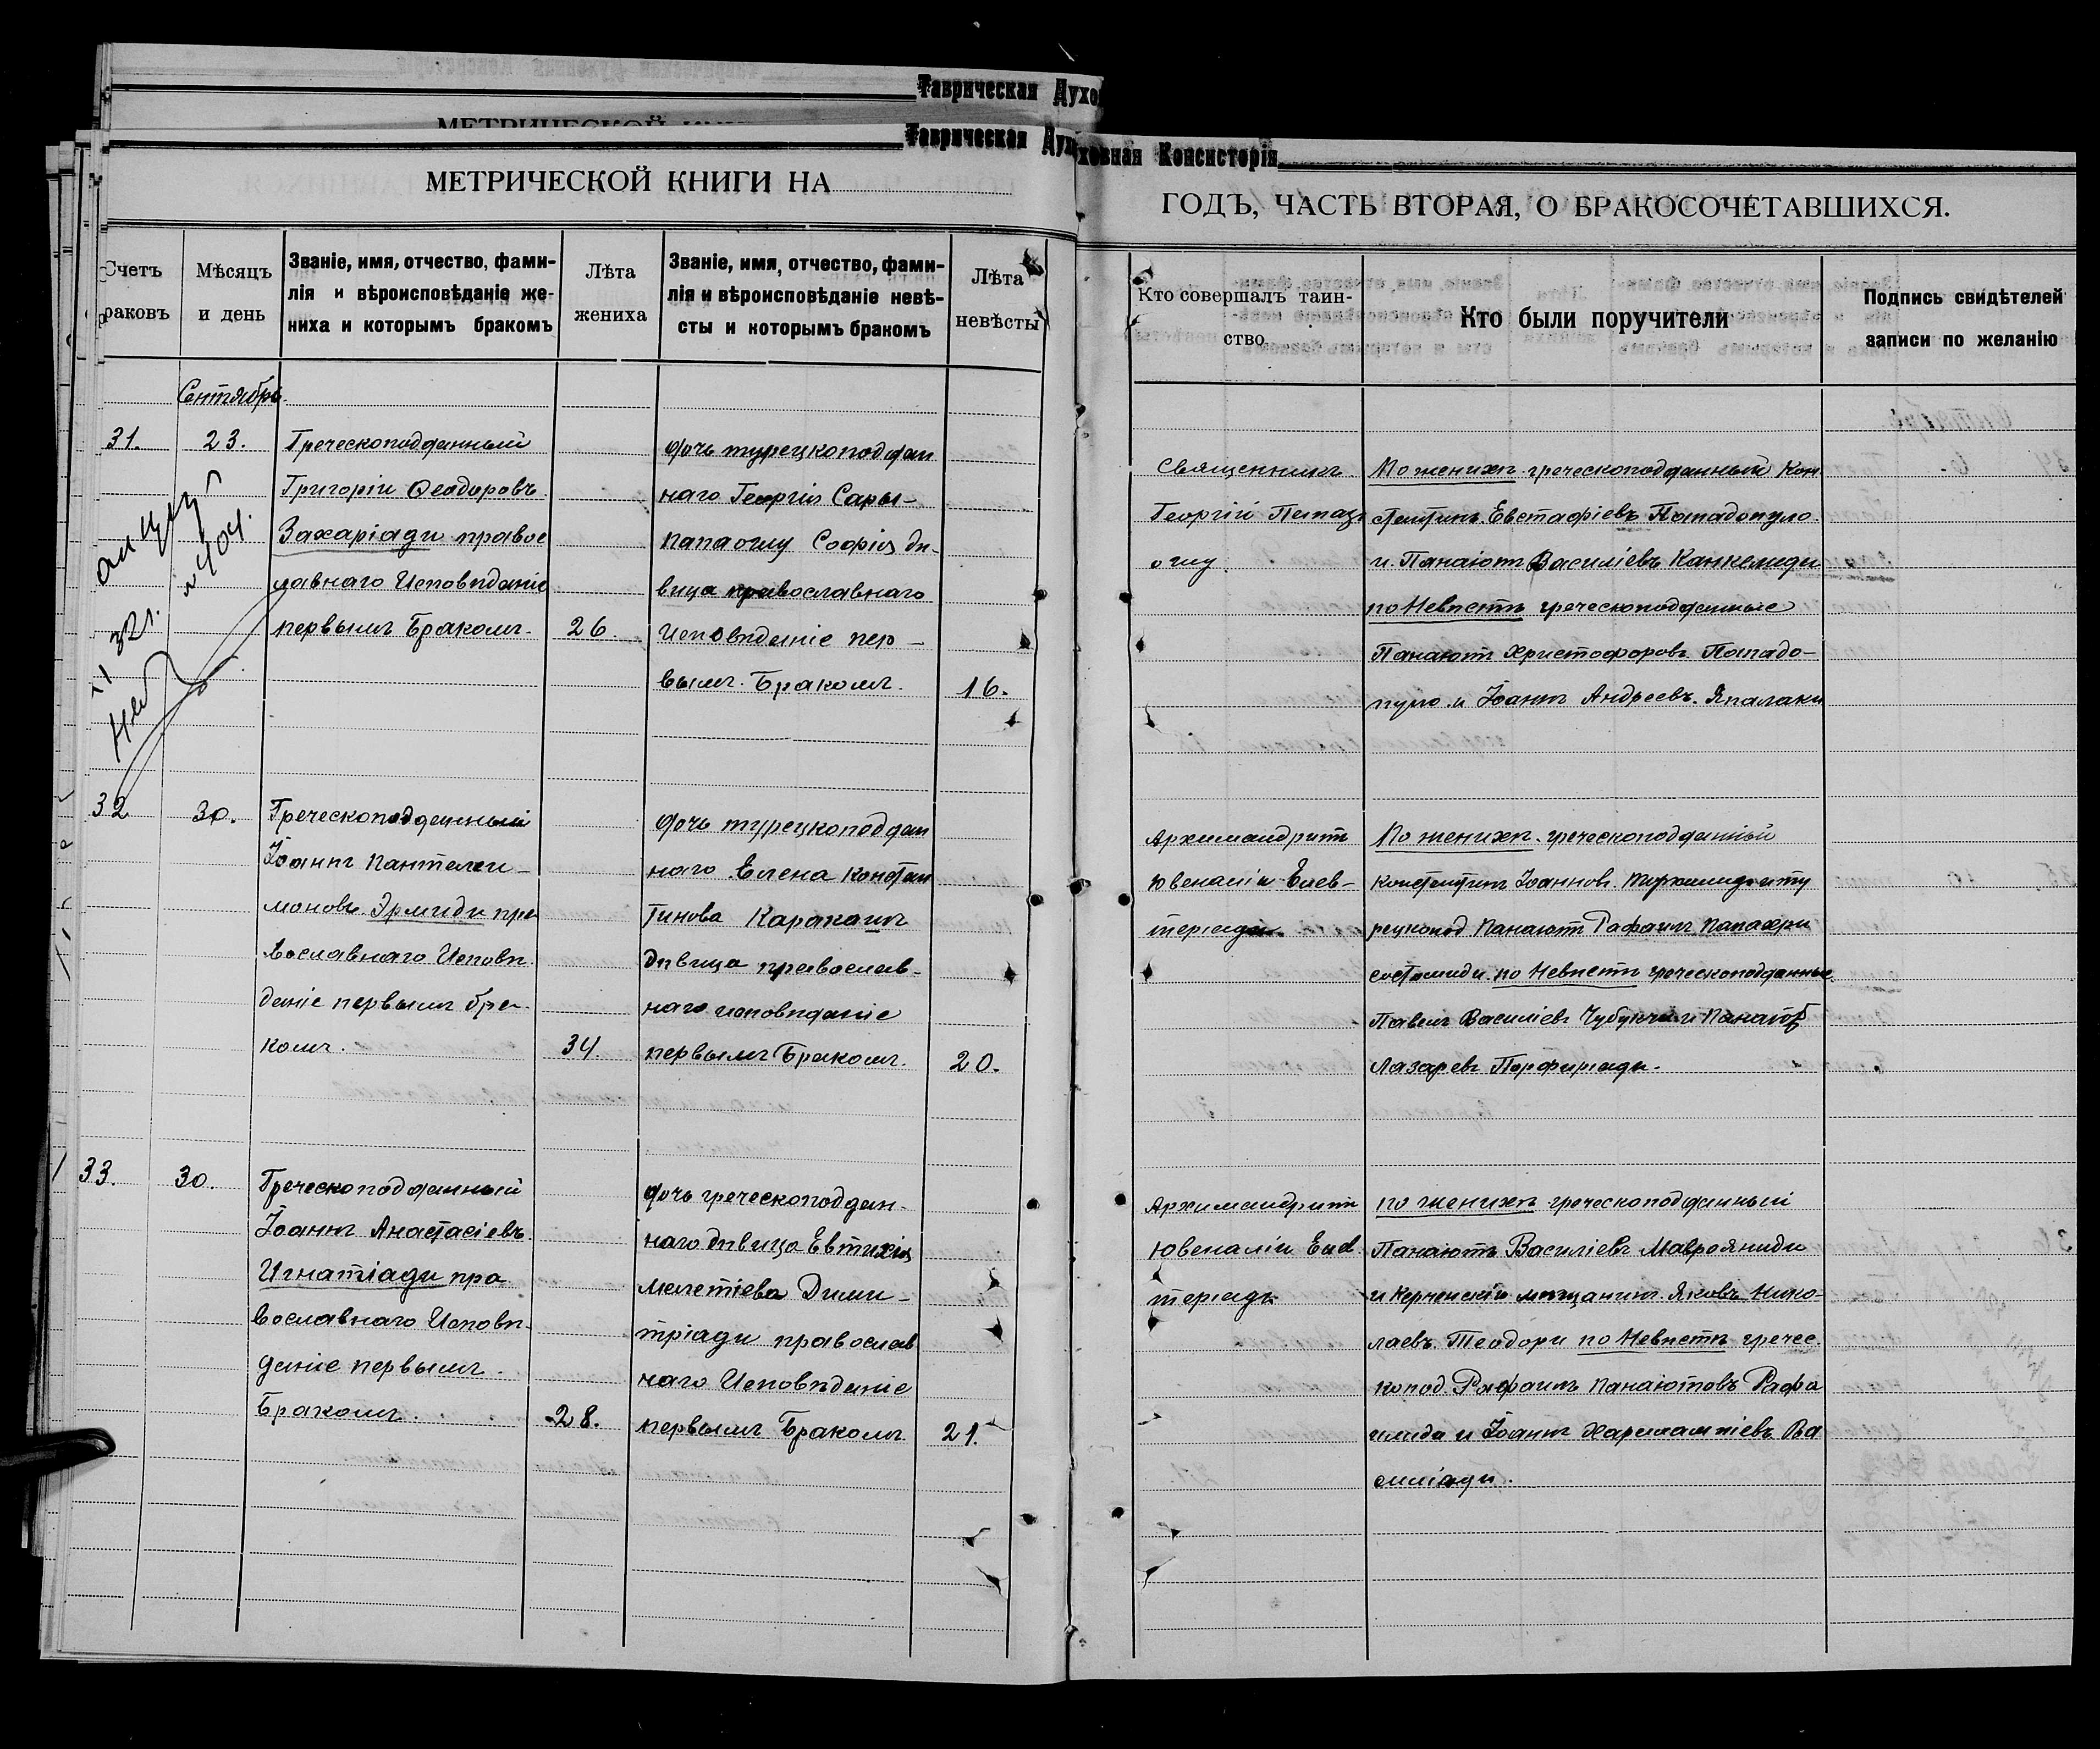 Таврическая Духо
МЕТРИЧЕСКОЙ
Таврическая Духовная Консисторія
МЕТРИЧЕСКОЙ КНИГИ НА
ГОДЪ, ЧАСТЬ ВТОРАЯ, О БРАКОСОЧЕТАВШИХСЯ.
Счетъ
раковъ
Мѣсяцъ
и день
Званіе, имя, отчество, фами-
лія и вѣроисповѣданіе же-
ниха и которымъ бракомъ
Лѣта
жениха
Званіе, имя, отчество, фами-
лія и вѣроисповѣданіе невѣ-
сты и которымъ бракомъ
Лѣта
невѣсты
Кто совершалъ таин-
ство
Кто были поручители
Подпись свидѣтелей
записи по желанію
Сентябрь
31.
23.
Греческоподданный
Григорій Ѳеодоровъ
Захаріади правос
лавнаго Исповѣданіе
первымъ Бракомъ.
26.
дочь турецкоподдан
наго Георгія Сары-
папаоглу Софія дѣ-
вица православнаго
Исповѣданіе пер-
вымъ Бракомъ.
16.
Священникъ
Георгій
оглу
По женихѣ греческоподданный Кон
стантинъ Евстафіевъ Пападопуло
и Панаіотъ Василіевъ Канкелиди
по Невѣстѣ греческоподданные
Панаіотъ Христофоровъ Пападо-
пуло и Іоаннъ Андреевъ Япалаки
№ 404.
32
30.
Греческоподданный
Іоаннъ Пантелеи-
моновъ Эрмиди пра
вославнаго Исповѣ
даніе первымъ бра-
комъ.
34
дочь турецкоподдан
наго Елена Констан
тинова Каракашъ
дѣвица православ-
наго исповѣданіе
первымъ Бракомъ.
20.
Архимандритъ
Ювеналій Елев-
теріади
По женихѣ греческоподданный
Константинъ Іоанновъ
рецкопод Панаіотъ Рафаилъ
по Невѣстѣ греческоподданные
Павелъ Василіевъ и Панаіотъ
Лазаревъ Порфиріади.
33.
30.
Греческоподданный
Іоаннъ Анастасіевъ
Игнатіади пра
вославнаго Исповѣ-
даніе первымъ
Бракомъ.
28.
дочь греческоподдан-
наго дѣвица Евтихія
Мелетіева Дими-
тріади православ
наго Исповѣданіе
первымъ Бракомъ
21.
Архимандритъ
Ювеналій Елев
теріади
по женихѣ греческоподданный
Панаіотъ Василіевъ Маврояниди
и Керченскій мѣщанинъ Яковъ Нико-
лаевъ Теодори по Невѣстѣ гречес.
копод. Рафаилъ Панаіотовъ Рафа
илиди и Іоаннъ Харлампіевъ Ва
силіади.